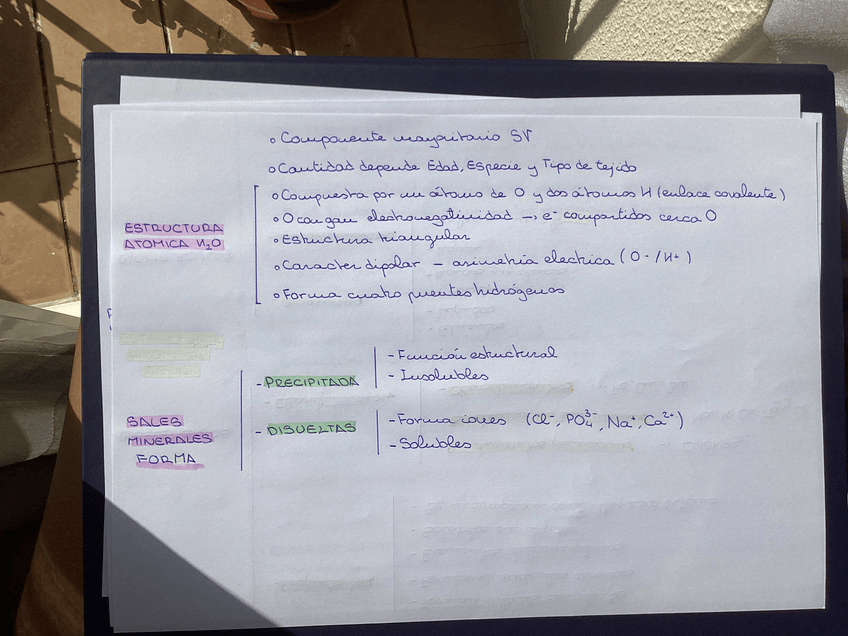 ◦ Componente mayoritario SV
◦ Cantidad depende Edad, Especie y Tipo de tejido
ESTRUCTURA
ATOMICA H₂O
◦ Compuesta por un átomo de O y dos átomos H (enlace covalente)
◦ O cargan electronegatividad → e⁻ compartidos cerca O
◦ Estructura triangular
◦ Caracter dipolar – asimetría electrica (O⁻ / H⁺)
◦ Forma cuatro puentes hidrógenos
SALES
MINERALES
FORMA
- PRECIPITADA
- Función estructural
- Insolubles
- DISUELTAS
- Forma iones (Cl⁻, PO₄³⁻, Na⁺, Ca²⁺)
- Solubles